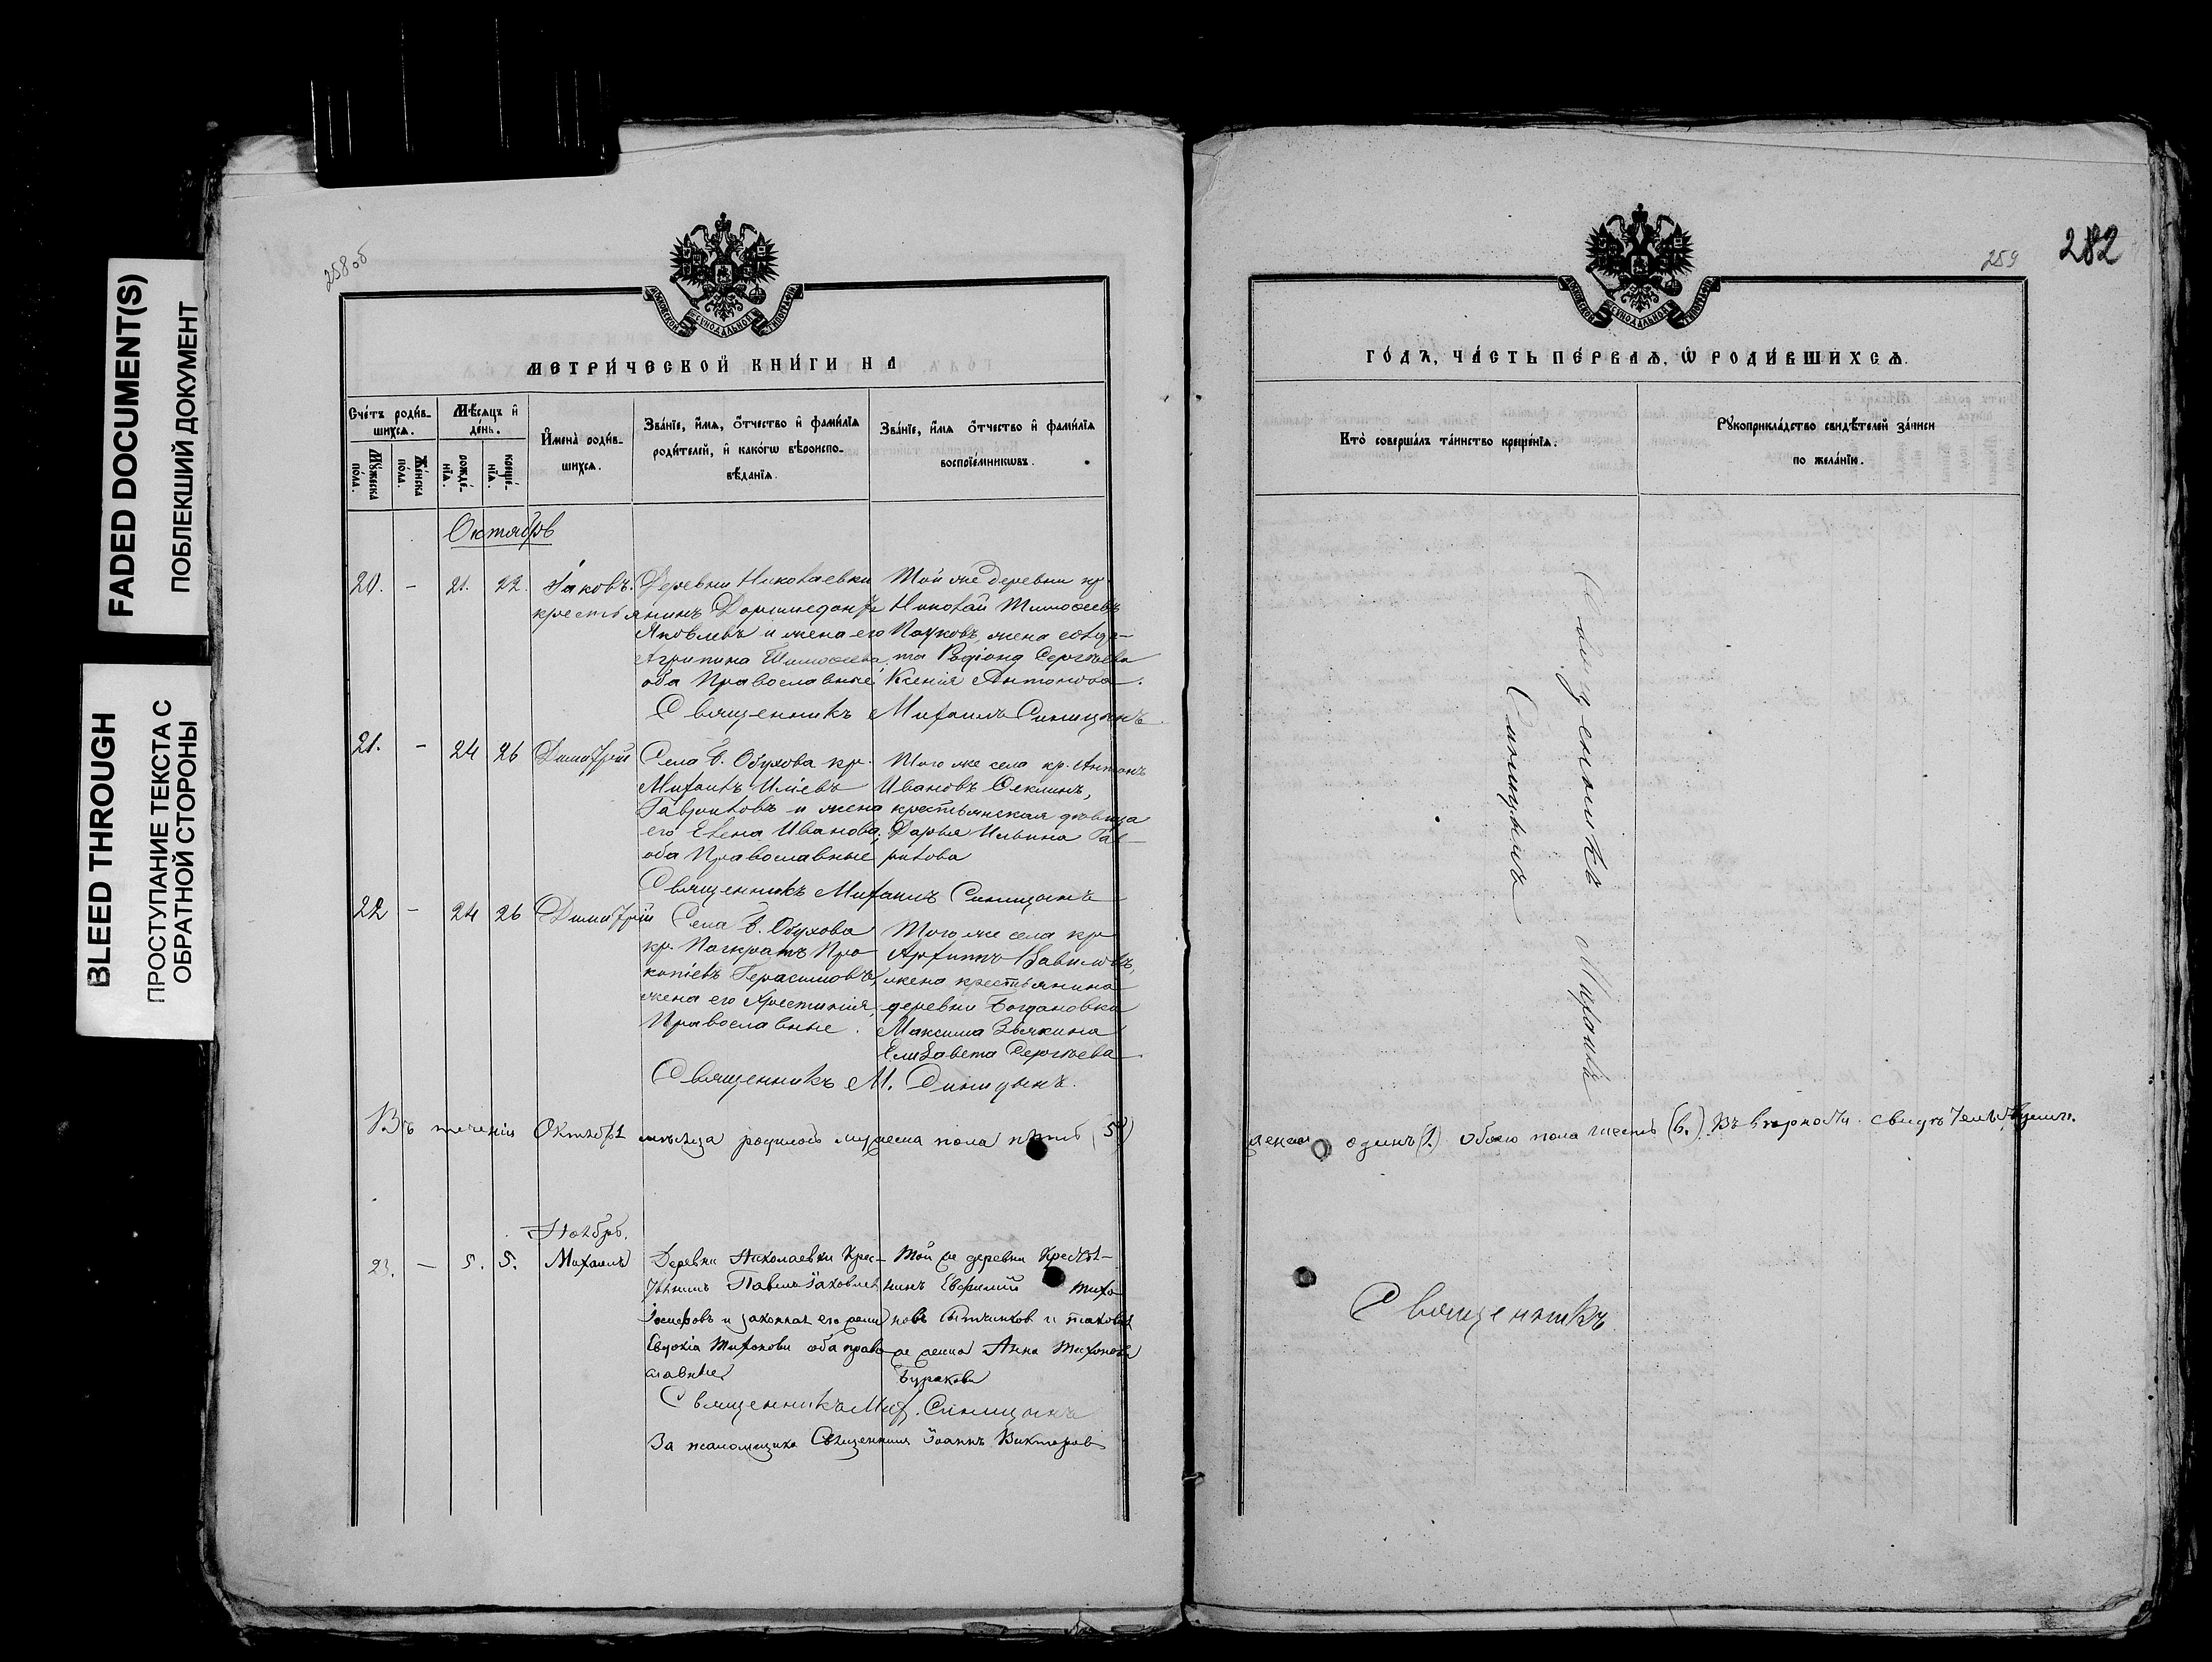 FADED DOCUMENT(S)
ПОБЛЕКШИЙ ДОКУМЕНТ
BLEED THROUGH
ПРОСТУПАНИЕ ТЕКСТА С
ОБРАТНОЙ СТОРОНЫ
258об
МОСКОВСКОЙ СѴНОДАЛЬНОЙ ТИПОГРАФІИ
МЕТРИ́ЧЕСКОЙ КНИ́ГИ НА
Сче́тъ роди́в-
шихсѧ.
Мѣ́сѧцъ и҆
де́нь.
И҆мена̀ роди́в-
шихсѧ.
Зва́нїе, и҆́мѧ, ѻ҆́тчество и҆ фами́лїѧ
роди́телей, и҆ како́гѡ вѣроиспо-
вѣ́данїѧ.
Зва́нїе, и҆́мѧ ѻ҆́тчество и҆ фами́лїѧ
воспрїе́мникѡвъ.
Мꙋ́жеска
по́ла.
Же́нска
по́ла.
рожде́-
нїѧ.
креще́-
нїѧ.
Октябрь
20. - 21. 22. Іаковъ.
Деревни Николаевки
крестьянинъ
Яковлевъ и жена его
Агрипина Тимоѳеева,
оба Православные
Той же деревни кр.
Николай Тимоѳеевъ
жена
Сергѣева
Ксенія Антонова.
Священникъ Михаилъ Синицынъ.
21. - 24 26 Димитрій
Села В. Обухова кр.
Михаилъ Иліевъ
Гавриловъ и жена
его Елена Иванова,
оба Православные
Того же села кр. Антонъ
Ивановъ
крестьянская дѣвица
Дарья Ильина Гав-
рилова
Священникъ Михаилъ Синицынъ
22 - 24 26 Димитрій
Села В. Обухова
кр. Панкратъ Про
копіевъ Герасимовъ,
жена его Христинія,
Православные.
Того же села кр
Архиппъ Вавиловъ,
жена крестьянина
деревни Богдановки
Максима Звякина
Елизавета Сергѣева
Священникъ М. Синицынъ.
Въ теченіи Октября мѣсяца родилось мужеска пола пять (5)
Ноябрь.
23. - 5. 5. Михаилъ
Деревни Николаевки Крес-
тьянинъ Павелъ Іаковлев
и законная его жена
Евдокія Тихонова оба право
славные
Той же деревни Крестья-
нинъ Евфимій Тихо
новъ
же жена Анна Тихонова
Бурлакова
Священникъ Мих. Синицынъ
За псаломщика Священникъ Іоаннъ Викторовъ
259
282
МОСКОВСКОЙ СѴНОДАЛЬНОЙ ТИПОГРАФІИ
ГО́ДА, ЧА́СТЬ ПЕ́РВАѦ, Ѡ҆ РОДИ́ВШИХСѦ.
Кто̀ соверша́лъ та́инство креще́нїѧ.
Рꙋкоприкла́дство свидѣ́телей за́писи
по жела́нїю.
Священникъ Михаилъ
Синицынъ
женска одинъ (1.) Обоего пола шесть (6.) Въ вѣрности свидѣтельствуемъ.
Священникъ